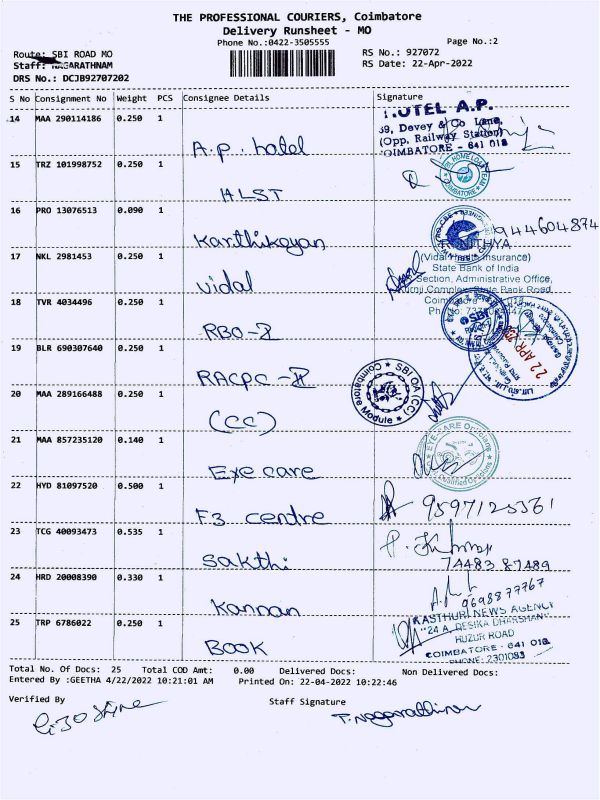 THE PROFESSIONAL COURIERS, Coimbatore
Delivery Runsheet - MO
Phone No.:0422-3505555
Page No.:2
Route: SBI ROAD MO
RS No.: 927072
Staff: NAGARATHNAM
RS Date: 22-Apr-2022
DRS No.: DCJB92707202
S No Consignment No Weight PCS Consignee Details Signature
14 MAA 290114186 0.250 1 A.p. hotel
HOTEL A.P.
39, Davey & Co Lane,
(Opp, Railway Station)
COIMBATORE - 641 018
15 TRZ 101998752 0.250 1 HLST
SBI HOME LOAN
COIMBATORE
16 PRO 13076513 0.090 1 Karthikeyan
944604874
17 NKL 2981453 0.250 1 Vidal
NITHYA
(Vidal Health Insurance)
State Bank of India
Section, Administrative Office,
Complex, State Bank Road,
18 TVR 4034496 0.250 1 RBO-II
SBI
19 BLR 690307640 0.250 1 RACPC-II
22 APR
20 MAA 289166488 0.250 1 (CC)
SBI OA (CC)
Coimbatore Module
21 MAA 857235120 0.140 1 Eye care
EYE CARE Opticians
Qualified Opticians
22 HYD 81097520 0.500 1 F3 centre
9597125561
23 TCG 40093473 0.535 1 Sakthi
74483 87489
24 HRD 20008390 0.330 1 Kannan
9698877767
25 TRP 6786022 0.250 1 BOOK
KASTHURI NEWS AGENCY
"24 A, DESIKA DHARSHAN"
HUZUR ROAD
COIMBATORE - 641 018
PHONE: 2301083
Total No. Of Docs: 25 Total COD Amt: 0.00 Delivered Docs: Non Delivered Docs:
Entered By :GEETHA 4/22/2022 10:21:01 AM Printed On: 22-04-2022 10:22:46
Verified By
Staff Signature
T. Nagarathinam